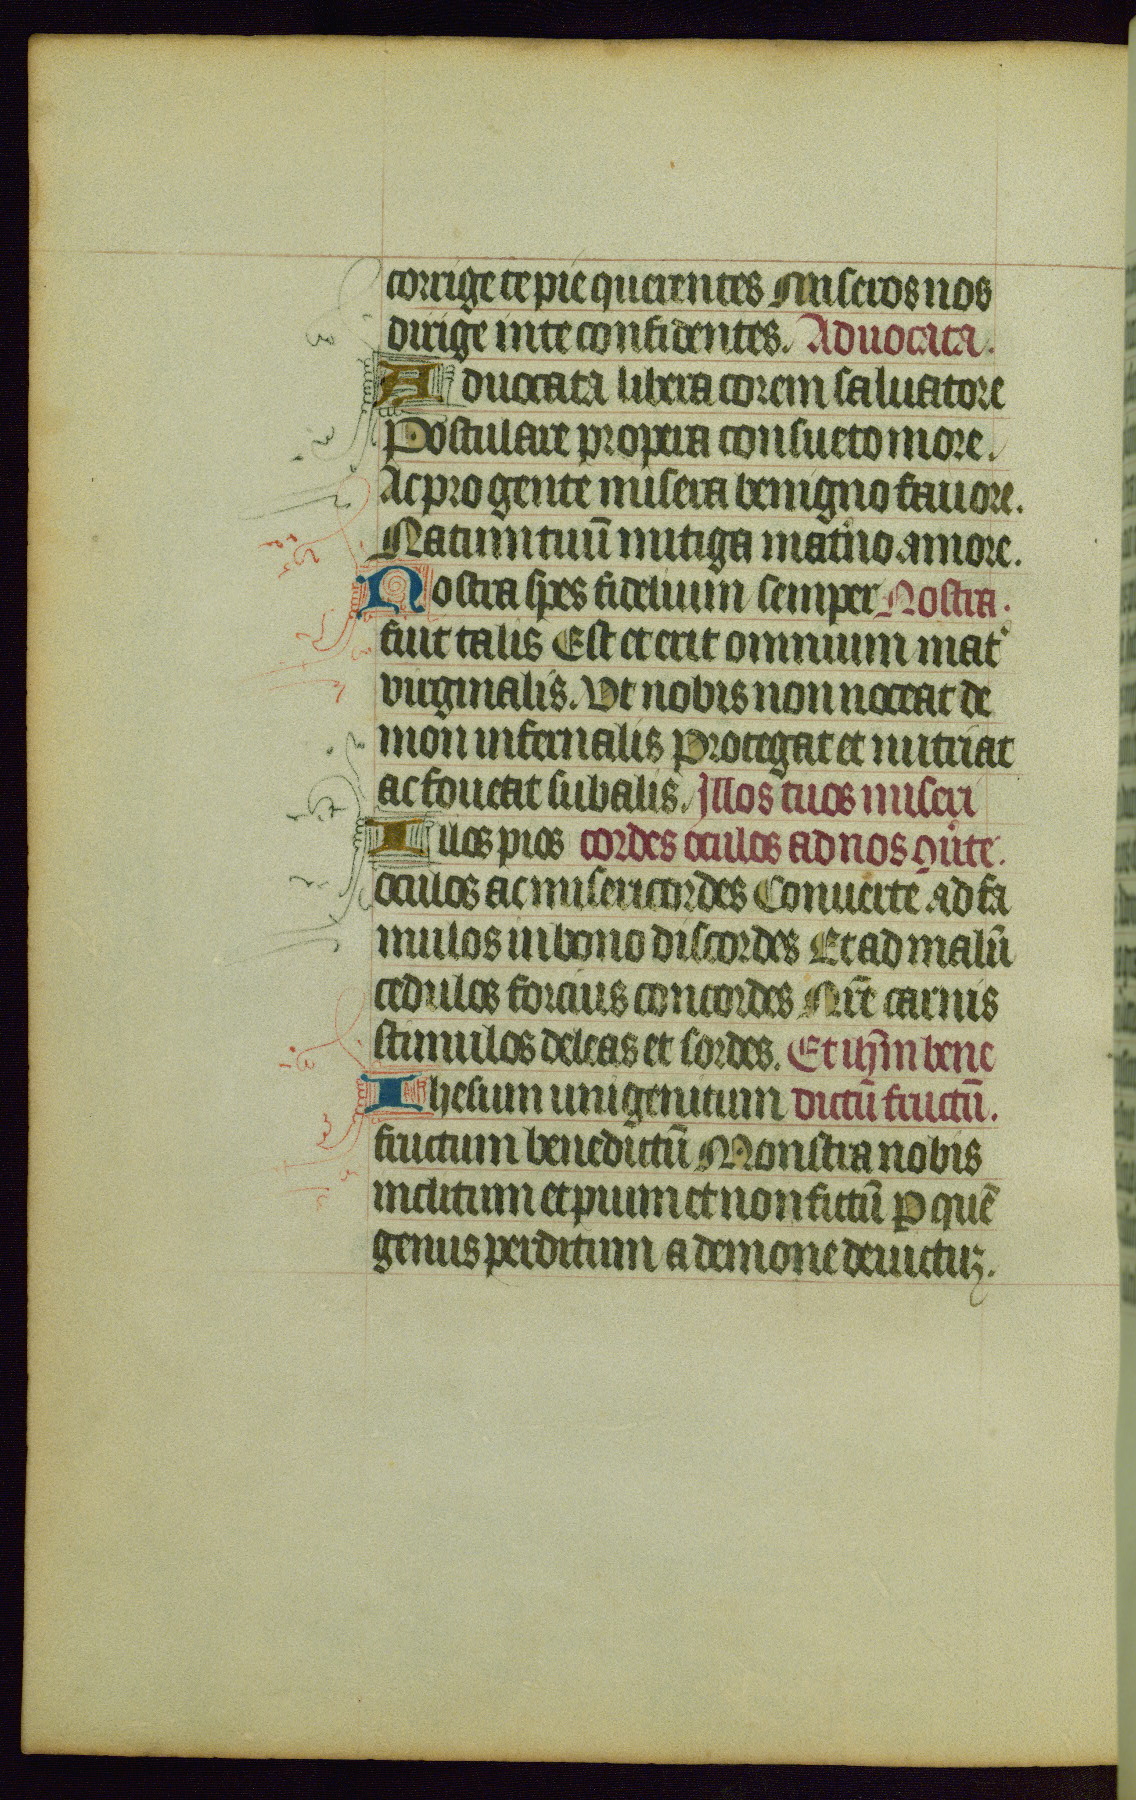 corrige te pie querentes Miseros nos
dirige in te confidentes. Aduocata.
Aduocata libera corem saluatore
Postulare propera consueto more.
Ac pro gente misera benigno fauore.
Natum tuū mitiga mat̉no amore.
Nostra spes fidelium semper Nostra.
fuit talis Est et erit omnium mat̉
virginalis. Vt nobis non noceat de
mon infernalis Protegat et nutriat
ac foueat sub alis. Illos tuos miseri
Illos pios cordes oculos ad nos ꝯủte.
oculos ac misericordes Conuerte ad fa
mulos in bono discordes Et ad malū
cedulos forcius concordes Nr̄e carnis
stimulos deleas et sordes. Et ih̄m bene
Ihesum unigenitum dictū fructū.
fructum benedictū Monstra nobis
inclitum et pium et non fictū ꝑ quē
genus perditum a demone deuictuꝫ.